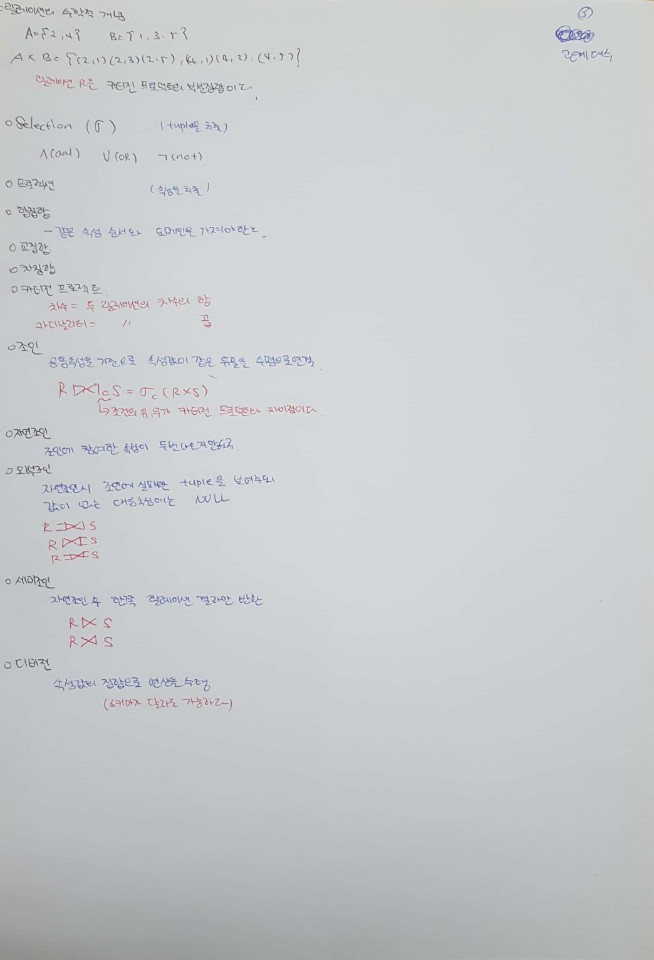 ③
관계대수
○릴레이션의 수학적 개념
A={2,4} B={1.3.5}
A × B= {(2,1)(2,3)(2,5),(4,1)(4,3).(4,5)}
릴레이션 R은 카티전 프로덕트의 부분집합이다.
○ Selection (σ) (tuple을 추출)
∧(and) ∨(OR) ¬(not)
○ 프로젝션 (속성을 추출)
○ 합집합
- 같은 속성 순서와 도메인을 가져야한다
○ 교집합
○ 차집합
○ 카티전 프로덕트
차수= 두 릴레이션의 차수의 합
카디날리티= 〃 곱
○조인
공통속성을 기준으로 속성값이 같은 튜플을 수평으로연결
R ⋈c S = σc (R×S)
↳조건의 유.무가 카티전 프로덕트와 차이점이다.
○자연조인
조인에 참여한 속성이 두번나오지않도록
○ 외부조인
자연조인시 조인에 실패한 tuple을 보여주되
값이 없는 대응속성에는 NULL
R ⟕ S
R ⟖ S
R ⟗ S
○ 세미조인
자연조인 후 한쪽 릴레이션 결과만 반환
R ⋉ S
R ⋊ S
○ 디비전
속성값의 집합으로 연산을 수행
(스키마가 달라도 가능하다~)